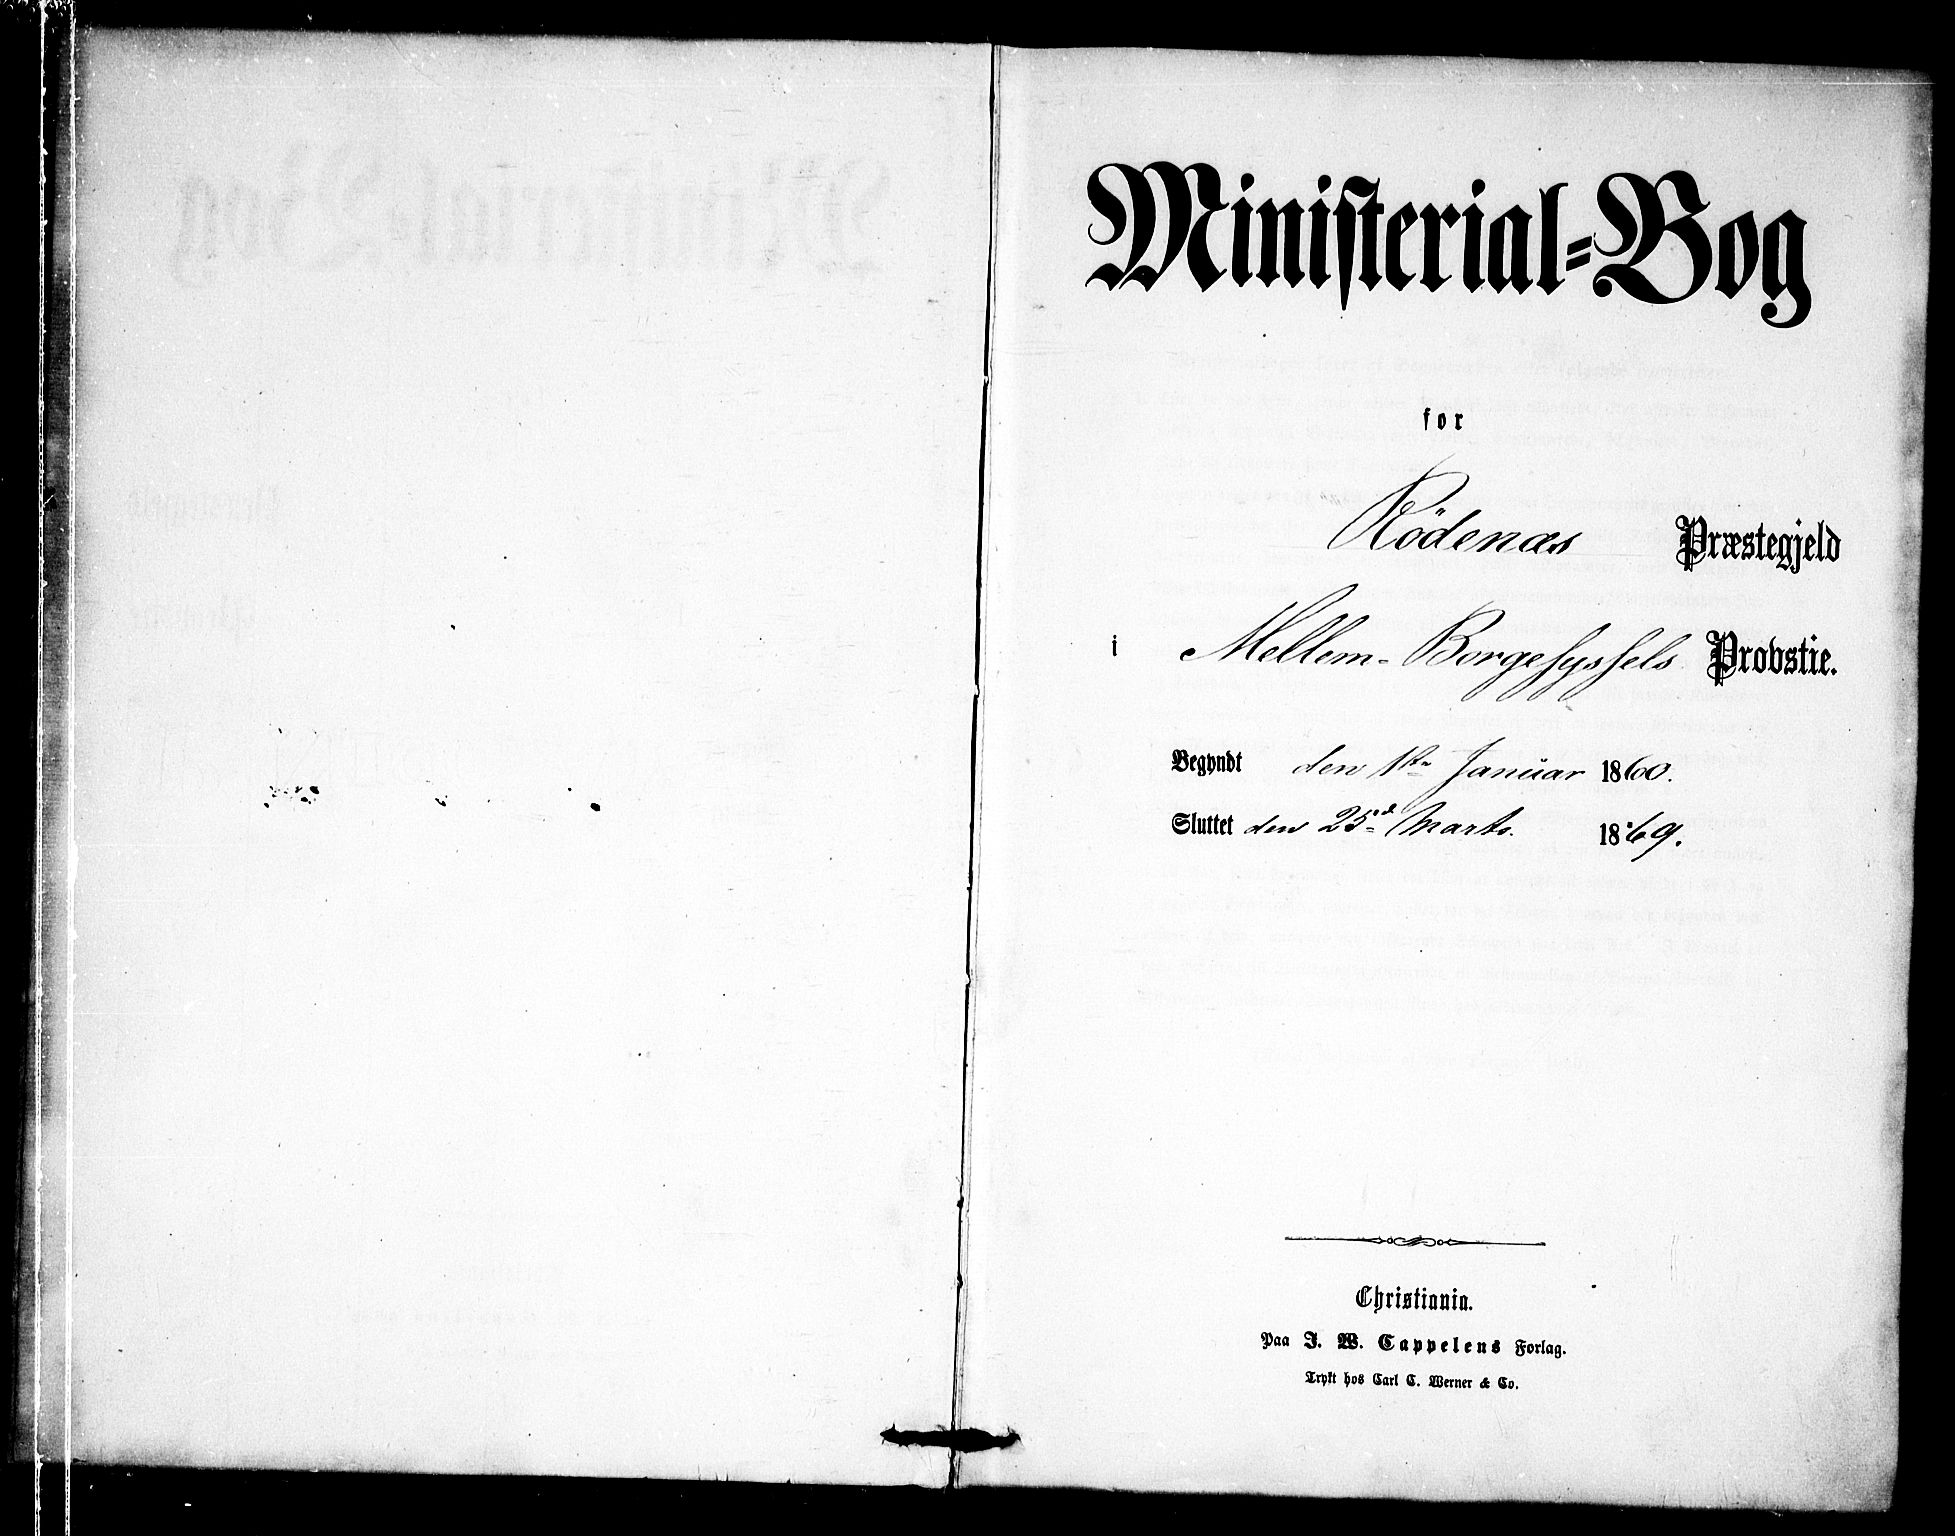 Ministerial-Bog
for
Rödenæs Præstegjeld
i Mellem-Borgesyssels Provstie.
Begyndt den 1ste Januar 1860.
Sluttet den 25d Marts. 1869.
Christiania.
Paa J. W. Cappelens Forlag.
Trykt hos Carl C. Werner & Co.